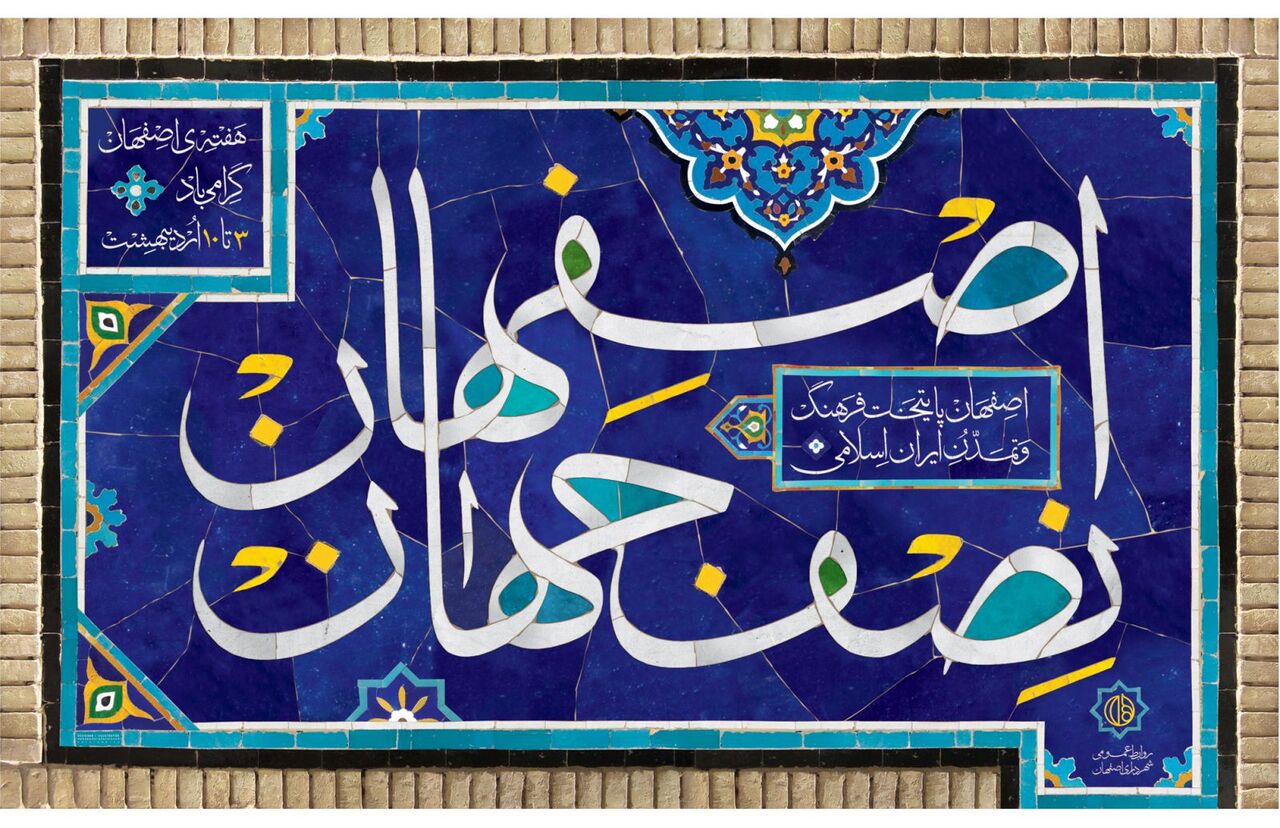 هفته‌ی اصفهان
گرامی باد
۳ تا ۱۰ اُردیبهشت
اصفهان
نِصفِ جَهان
اصفهان پایتخت فرهنگ
و تمدّنِ ایران اِسلامی
روابط عمومی
شهرداری اصفهان